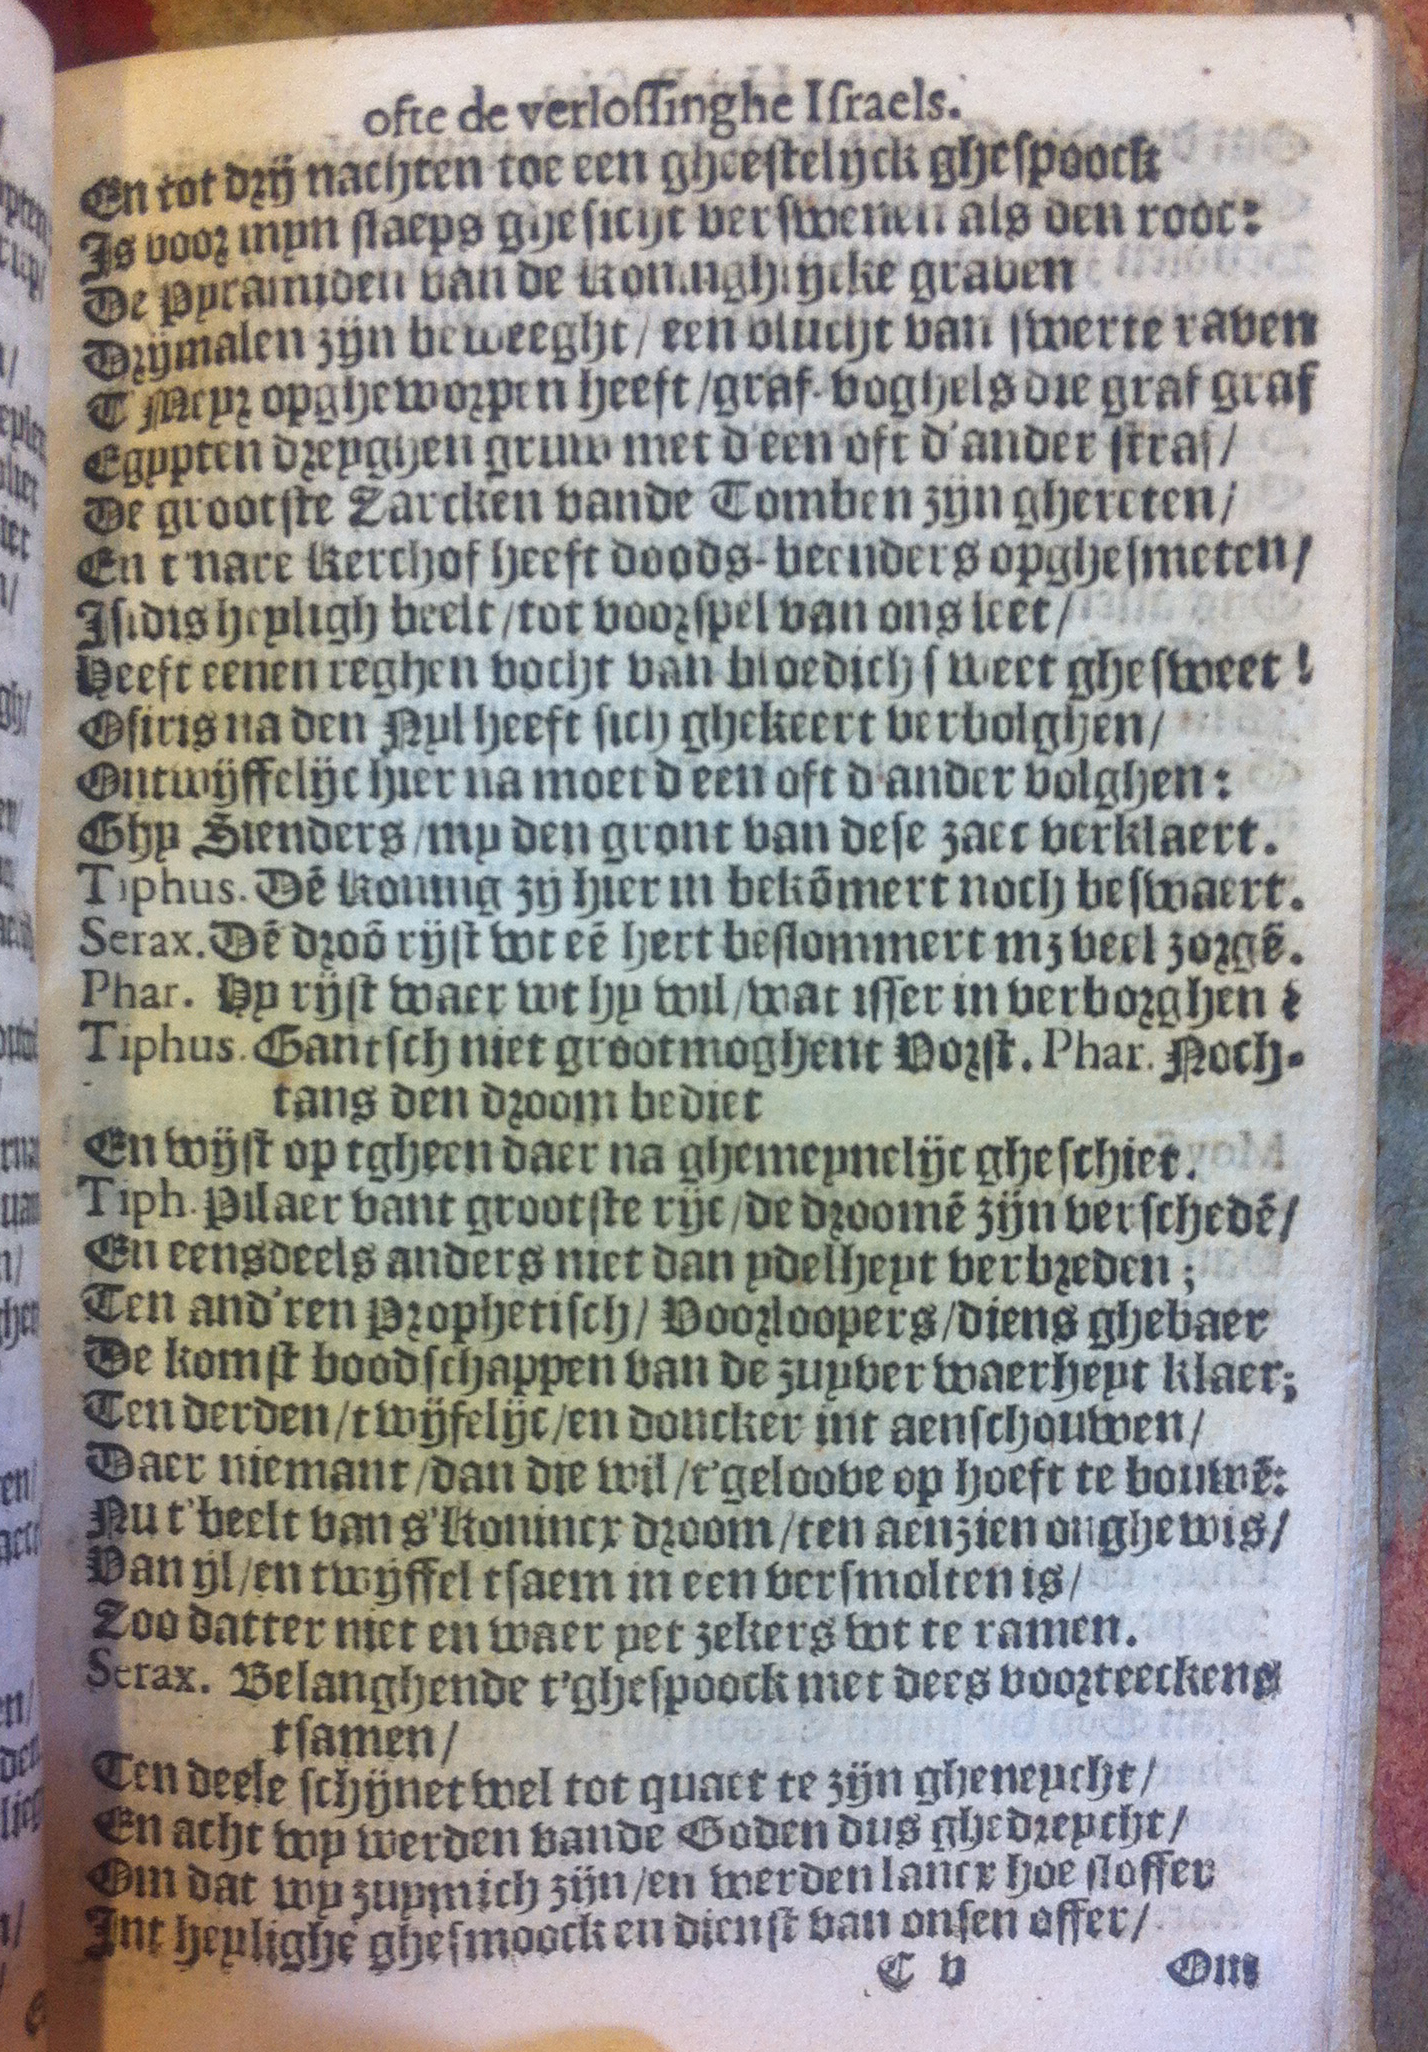 ofte de verlossinghe Israels.
En tot drij nachten toe een gheestelijck ghespoock
Is voor myn slaeps ghesicht verswenen als den rooc:
De Pyramiden van de koninghlijcke graven
Drijmalen zijn beweeght / een vlucht van swerte raven
T Meyr opgheworpen heeft / graf-voghels die graf graf
Egypten dreyghen gruw met d'een oft d'ander straf /
De grootste Zarcken vande Tomben zijn ghereten /
En t'nare kerchof heeft doods-beenders opghesmeten /
Isidis heyligh beelt / tot voorspel van ons leet /
Heeft eenen reghen vocht van bloedich sweet ghesweet !
Osiris na den Nyl heeft sich ghekeert verbolghen /
Ontwijffelijc hier na moet d'een oft d'ander volghen:
Ghy Sienders / my den gront van dese zaec verklaert.
Tiphus. Dē koning zy hier in bekōmert noch beswaert.
Serax. Dē droō rijst wt eē hert beslommert mz veel zorgē.
Phar. Hy rijst waer wt hy wil / wat isser in verborghen ?
Tiphus. Gantsch niet grootmoghent Vorst. Phar. Noch-
tans den droom bediet
En wijst op tgheen daer na ghemeynelijc gheschiet.
Tiph. Pilaer vant grootste rijc / de droomē zijn verschedē /
En eensdeels anders niet dan ydelheyt verbreden ;
Ten and'ren Prophetisch / Voorloopers / diens ghebaer
De komst boodschappen van de zuyver waerheyt klaer;
Ten derden / twijfelijc / en doncker int aenschouwen /
Daer niemant / dan die wil / t'geloove op hoeft te bouwē:
Nu t'beelt van s'konincx droom / ten aenzien onghewis /
Van ijl / en twijffel tsaem in een versmolten is /
Zoo datter niet en waer yet zekers wt te ramen.
Serax. Belanghende t'ghespoock met dees voorteeckens
tsamen /
Ten deele schijnet wel tot quaet te zijn gheneycht /
En acht wy werden vande Goden dus ghedreycht /
Om dat wy zuymich zijn / en werden lancx hoe sloffer
Int heylighe ghesmoock en dienst van onsen offer /
C v Ons